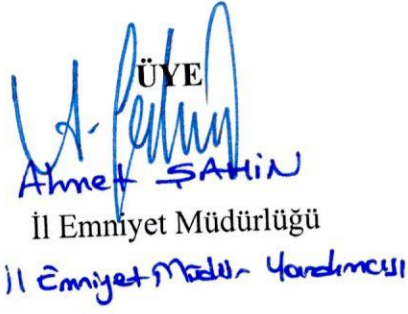 ÜYE
Ahmet ŞAHİN
İl Emniyet Müdürlüğü
İl Emniyet Müdür Yardımcısı